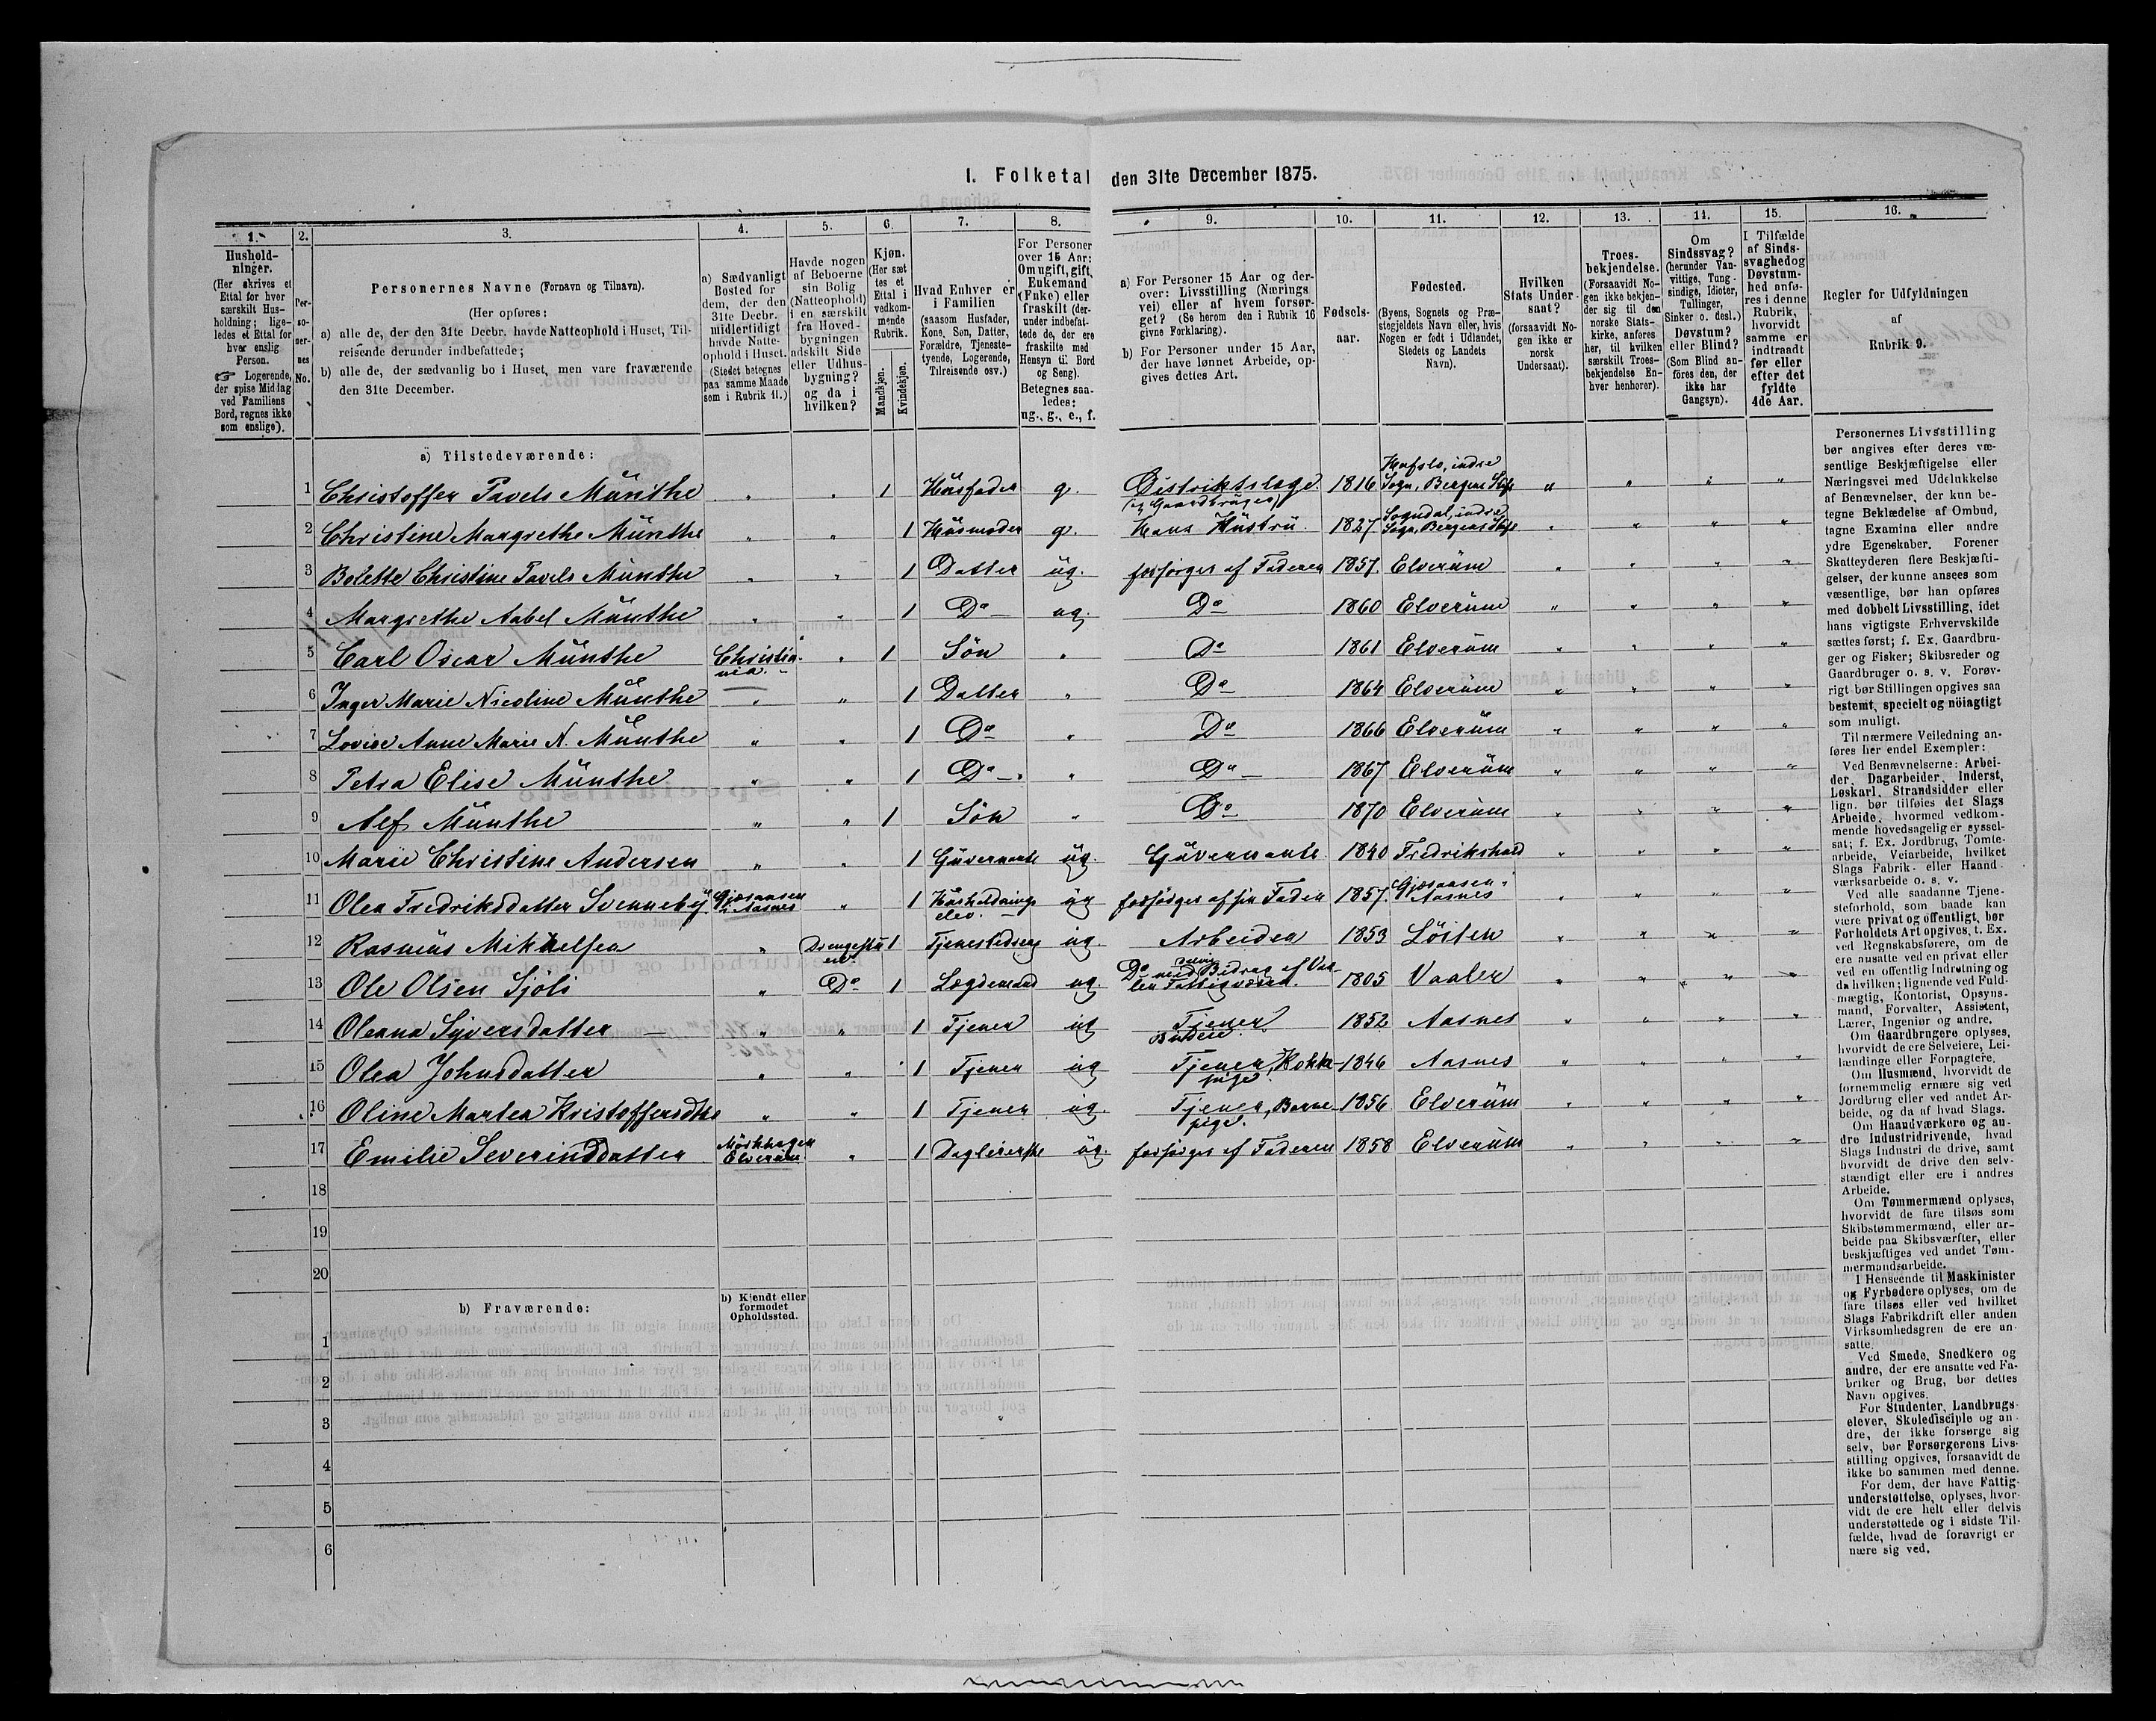 1. Folketal den 31te December 1875.
1. 2. 3. 4. 5. 6. 7. 8. 9. 10. 11. 12. 13. 14. 15. 16.
Hushold-
ninger.
(Her skrives et
Ettal for hver
særskilt Hus-
holdning; lige-
ledes et Ettal for
hver enslig
Person.
☞ Logerende,
der spise Middag
ved Familiens
Bord, regnes ikke
som enslige).
Per-
so-
ner-
nes
No.
Personernes Navne (Fornavn og Tilnavn).
(Her opføres:
a) alle de, der den 31te Decbr. havde Natteophold i Huset, Til-
reisende derunder indbefattede;
b) alle de, der sædvanlig bo i Huset, men vare fraværende
den 31te December.
a) Sædvanligt
Bosted for
dem, der den
31te Decbr.
midlertidigt
havde Natte-
ophold i Huset.
(Stedet betegnes
paa samme Maade
som i Rubrik 11.)
Havde nogen
af Beboerne
sin Bolig
(Natteophold)
i en særskilt
fra Hoved-
bygningen
adskilt Side
eller Udhus-
bygning?
og da i
hvilken?
Kjøn.
(Her sæt-
tes et
Ettal i
vedkom-
mende
Rubrik.
Mandkjøn.
Kvindekjøn.
Hvad Enhver er
i Familien
(saasom Husfader,
Kone, Søn, Datter,
Forældre, Tjeneste-
tyende, Logerende,
Tilreisende osv.)
For Personer
over 15 Aar:
Om ugift, gift,
Enkemand
(Enke) eller
fraskilt (der-
under indbefat-
tede de, der ere
fraskilte med
Hensyn til Bord
og Seng).
Betegnes saa-
ledes:
ug., g., e., f.
a) For Personer 15 Aar og der-
over: Livsstilling (Nærings
vei) eller af hvem forsør-
get? (Se herom den i Rubrik 16
givne Forklaring).
b) For Personer under 15 Aar,
der have lønnet Arbeide, op-
gives dettes Art.
Fødsels-
aar.
Fødested.
(Byens, Sognets og Præ-
stegjeldets Navn eller, hvis
Nogen er født i Udlandet,
Stedets og Landets
Navn).
Hvilken
Stats Under-
saat?
(forsaavidt No-
gen ikke er
norsk
Undersaat).
Troes-
bekjendelse.
(Forsaavidt No-
gen ikke bekjen-
der sig til den
norske Stats-
kirke, anføres
her, til hvilken
særskilt Troes-
bekjendelse En-
hver henhører).
Om
Sindssvag?
(herunder Van-
vittige, Tung-
sindige, Idioter,
Tullinger,
Sinker o. desl.)
Døvstum?
eller Blind?
(Som Blind an-
føres den, der
ikke har
Gangsyn).
I Tilfælde
af Sinds-
svaghed og
Døvstum-
hed anfø-
res i denne
Rubrik,
hvorvidt
samme er
indtraadt
før eller
efter det
fyldte
4de Aar.
Regler for Udfyldningen
af
Rubrik 9.
a) Tilstedeværende:
1 Christoffer Pavels Münthe " " 1 Husfader g. Distriktslæge (og Gaardbruger) 1816 Hafslo, indre Sogn, Bergens Stift " " " "
2 Christine Margrethe Münthe " " 1 Husmoder g. Hans Hustru 1827 Sogndal, indre Sogn, Bergens Stift " " " "
3 Bolette Christine Pavels Münthe " " 1 Datter ug. forsørges af Faderen 1857. Elverum " " " "
4 Margrethe Aabel Münthe " " 1 Do ug. Do 1860 Elverum " " " "
5 Carl Oscar Münthe Christiania. " 1 Søn " Do 1861 Elverum " " " "
6 Inger Marie Nicoline Münthe " " 1 Datter " Do 1864 Elverum " " " "
7 Lovise Anne Marie N. Münthe " " 1 Do " Do 1866 Elverum " " " "
8 Petra Elise Münthe " " 1 Do " Do 1867 Elverum " " " "
9 Alf Münthe " " 1 Søn " Do 1870 Elverum " " " "
10 Marie Christine Andersen " " 1 Guvernante ug. Guvernante 1840 Fredrikshald " " " "
11 Olea Fredriksdatter Svenneby Gjæsaasen i Aasnes " 1 Husholdnings elev. ug forsørges af sin Fader 1857. Gjæsaasen i Aasnes " " " "
12 Rasmus Mikkelsen " Drengestuen 1 ug. Arbeider 1853 Löiten " " " "
13 Ole Olsen Sjöli " Do 1 Lægdemand ug. Do med Bidrag af Vaaler Fattigvæsen. 1805 Vaaler " " " "
14 Oleana Syversdatter " " 1 Tjener ug Tjener Budeie. 1852 Aasnes " " " "
15 Olea Johnsdatter " " 1 Tjener ug Tjener, Kokkepige. 1846 Aasnes " " " "
16 Oline Martea Kristoffersdtr " " 1 Tjener ug. Tjener, Barnepige. 1856 Elverum " " " "
17 Emilie Severinsdatter Elverum " 1 ug. forsørges af Faderen 1858 Elverum " " " "
18
19
20
b) Fraværende:
b) Kjendt eller
formodet
Opholdssted.
1
2
3
4
5
6
Personernes Livsstilling
bør angives efter deres væ-
sentlige Beskjæftigelse eller
Næringsvei med Udelukkelse
af Benævnelser, der kun be-
tegne Beklædelse af Ombud,
tagne Examina eller andre
ydre Egenskaber. Forener
Skatteyderen flere Beskjæfti-
gelser, der kunne ansees som
væsentlige, bør han opføres
med dobbelt Livsstilling, idet
hans vigtigste Erhvervskilde
sættes først; f. Ex. Gaardbru-
ger og Fisker; Skibsreder og
Gaardbruger o. s. v. Forøv-
rigt bør Stillingen opgives saa
bestemt, specielt og nöiagtigt
som muligt.
Til nærmere Veiledning an-
føres her endel Exempler:
Ved Benævnelserne: Arbei-
der, Dagarbeider, Inderst,
Løskarl, Strandsidder eller
lign. bør tilføies det Slags
Arbeide, hvormed vedkom-
mende hovedsagelig er syssel-
sat; f. Ex. Jordbrug, Tomte-
arbeide, Veiarbeide, hvilket
Slags Fabrik- eller Haand-
værksarbeide o. s. v.
Ved alle saadanne Tjene-
steforhold, som baade kan
være privat og offentligt, bør
Forholdets Art opgives, t. Ex.
ved Regnskabsførere, om de
ere ansatte ved en privat eller
ved en offentlig Indretning og
da hvilken; lignende ved Fuld-
mægtig, Kontorist, Opsyns-
mand, Forvalter, Assistent,
Lærer, Ingeniør og andre.
Om Gaardbrugere oplyses,
hvorvidt de ere Selveiere, Lei-
lændinge eller Forpagtere.
Om Husmænd, hvorvidt de
fornemmelig ernære sig ved
Jordbrug eller ved andet Ar-
beide, og da af hvad Slags.
Om Haandværkere og an-
dre Industridrivende, hvad
Slags Industri de drive, samt
hvorvidt de drive den selv-
stændigt eller ere i andres
Arbeide.
Om Tømmermænd oplyses,
hvorvidt de fare tilsøs som
Skibstømmermænd, eller ar-
beide paa Skibsværfter, eller
beskjæftiges ved andet Tøm-
mermandsarbeide.
I Henseende til Maskinister
og Fyrbødere oplyses, om de
fare tilsøs eller ved hvilket
Slags Fabrikdrift eller anden
Virksomhedsgren de ere an-
satte.
Ved Smede, Snedkere og
andre, der ere ansatte ved Fa-
briker og Brug, bør dettes
Navn opgives.
For Studenter, Landbrugs-
elever, Skoledisciple og an-
dre, der ikke forsørge sig
selv, bør Forsørgerens Livs-
stilling opgives, forsaavidt de
ikke bo sammen med denne.
For dem, der have Fattig-
understøttelse, oplyses, hvor-
vidt de ere helt eller delvis
understøttede og i sidste Til-
fælde, hvad de forøvrigt er
nære sig ved.